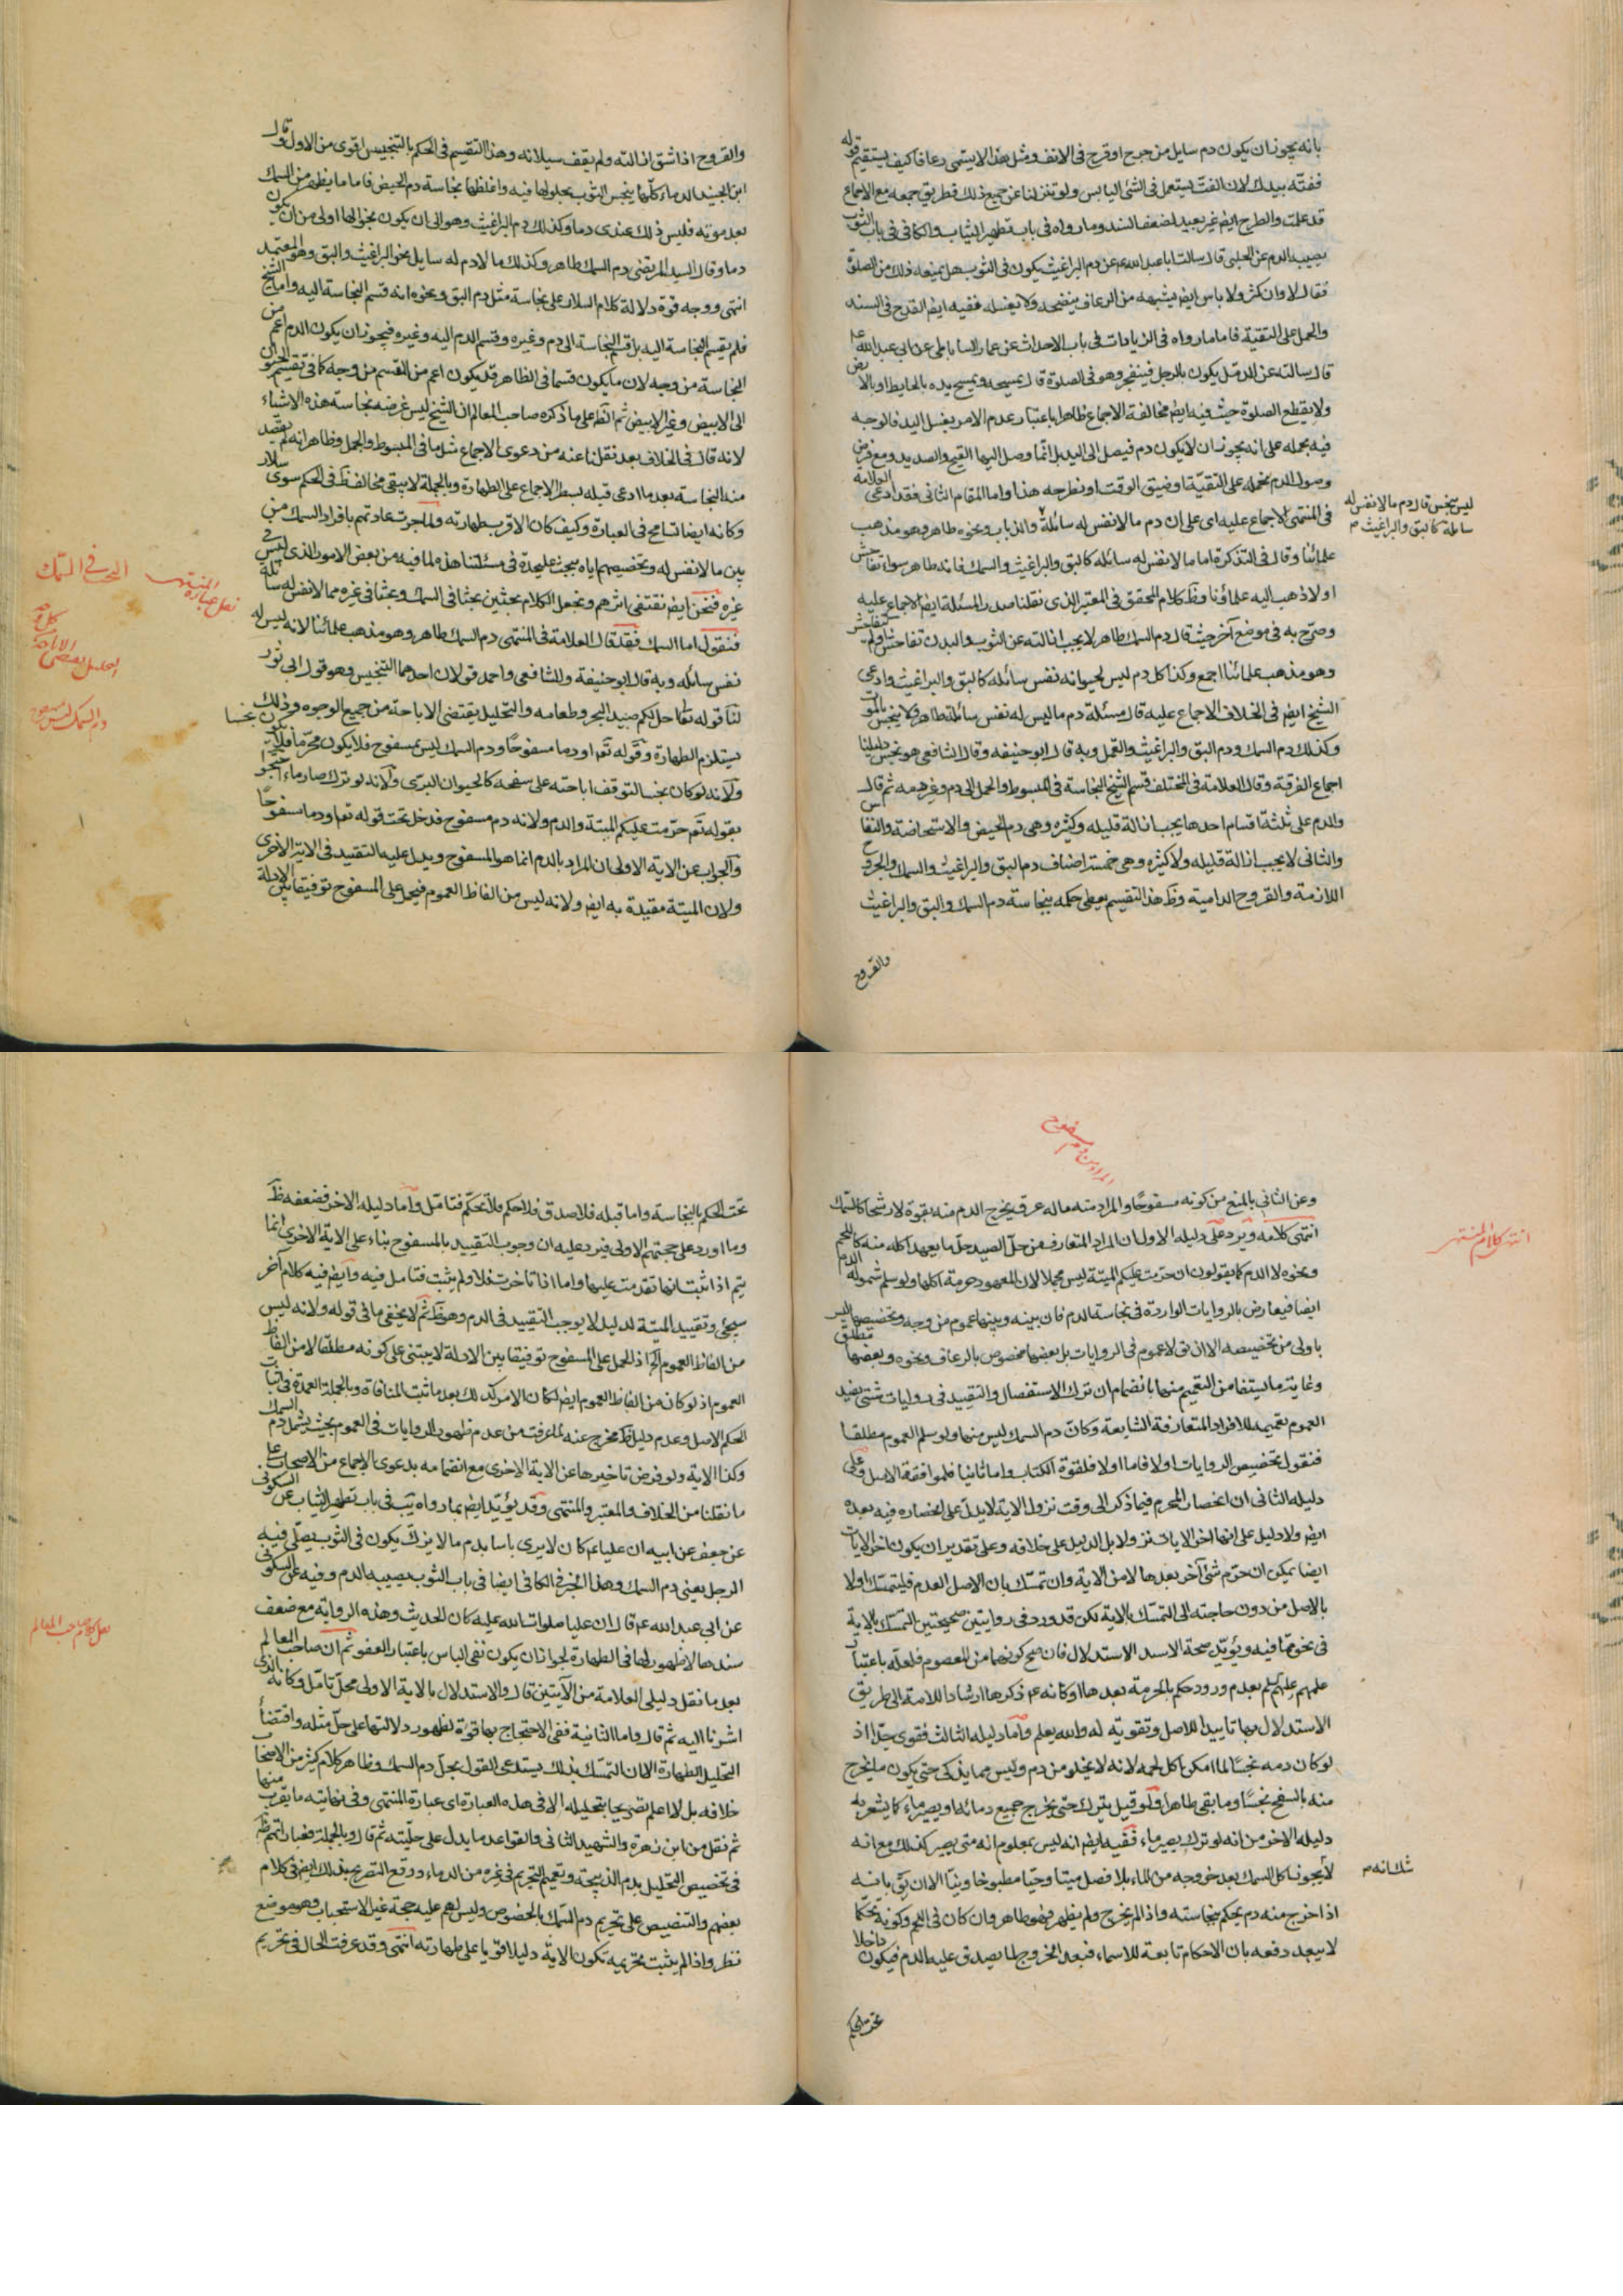 بانه يجوز ان يكون دم سايل من جرح او قرح في الانف ومثل هذا لا يسمى رعافا كيف يستقيم قوله
ففته بيدك لان الفت يستعمل في الشئ اليابس ولو تنزلنا عن جميع ذلك فطريق جمعه مع الاجماع
قد علمت والطرح ايض غير بعيد لضعف السند وما رواه في باب تطهير الثياب والكافي في باب الثوب
يصيبه الدم عن الحلبي قال سالت ابا عبد الله ع عن دم البراغيث يكون في الثوب هل يمنعه ذلك من الصلوة
فقال لا وان كثر ولا باس ايض بشبهه من الرعاف ينضحه ولا يغسله ففيه ايض القدح في السند
والحمل على التقية فاما ما رواه في الزيادات في باب الاحداث عن عمار الساباطي عن ابي عبد الله ع
قال سالته عن الدمل يكون بالرجل فينفجر وهو في الصلوة قال يمسحه ويمسح يده بالحايط او بالارض
ولا يقطع الصلوة حيث فيه ايض مخالفة الاجماع ظاهرا باعتبار عدم الامر بغسل اليد فالوجه
فيه بحمله على انه يجوز ان لا يكون دم فيصل الى اليد بل انما وصل اليها القيح والصديد ومع فرض
وصول الدم نحمله على التقية او ضيق الوقت او نطرحه هذا واما المقام الثاني فقد ادعى العلامة
في المنتهى الاجماع عليه اى على ان دم ما لا نفس له سائلة والذباب ونحوه طاهر وهو مذهب
ليس بنجس قال دم ما لا نفس له
سائلة كالبق والبراغيث م
علمائنا وقال في التذكرة اما ما لا نفس له سائله كالبق والبراغيث والسمك فانه طاهر سواء تفاحش
او لا ذهب اليه علماؤنا وظ كلام المحقق في المعتبر الذي نقلنا صدر المسئلة ايض الاجماع عليه
وصرح به في موضع آخر حيث قال دم السمك طاهر لا يجب ازالته عن الثوب والبدن تفاحش او لم يتفاحش
وهو مذهب علمائنا اجمع وكذا كل دم ليس لحيوانه نفس سائله كالبق والبراغيث وادعى
الشيخ ايض في الخلاف الاجماع عليه قال مسئلة دم ما ليس له نفس سائلة طاهر ولا ينجس بالموت
وكذلك دم السمك ودم البق والبراغيث والقمل وبه قال ابو حنيفه وقال الشافعي هو نجس دليلنا
اجماع الفرقة وقال العلامة في المختلف قسم الشيخ النجاسة في المبسوط والجمل الى دم وغير دم ثم قال
والدم على ثلثة اقسام احدها يجب ازالة قليله وكثيره وهي دم الحيض والاستحاضة والنفاس
والثاني لا يجب ازالة قليله ولا كثيره وهي خمسة اصناف دم البق والبراغيث والسمك والجروح
اللازمة والقروح الدامية وظ هذا التقسيم يعطى حكمه بنجاسة دم السمك والبق والبراغيث
والقروح
والقروح اذا شق ازالته ولم يقف سيلانه وهذا التقسيم في الحكم بالتنجيس اقوى من الاول وقال
ابن الجنيد الدماء كلها ينجس الثوب بحلولها فيه واغلظها نجاسة دم الحيض فاما ما يظهر من السمك
بعد موته فليس ذلك عندى دما وكذلك دم البراغيث وهو الى ان يكون نجوا لها اولى من ان يكون
دما وقال السيد المرتضى دم السمك طاهر وكذلك ما لا دم له سايل نحو البراغيث والبق وهو المعتمد
انتهى ووجه قوة دلالة كلام السلار على نجاسة مثل دم البق ونحوه انه قسم النجاسة اليه واما الشيخ
فلم يقسم النجاسة اليه بل قسم النجاسة الى دم وغيره وقسم الدم اليه وغيره فيجوز ان يكون الدم اعم من
النجاسة من وجه لان ما يكون قسما في الظاهر قد يكون اعم من القسم من وجه كما في تقسيم الحيوان
الى الابيض وغير الابيض ثم الظ على ما ذكره صاحب المعالم ان الشيخ ليس غرضه نجاسة هذه الاشياء
لانه قال في الخلاف بعد نقلنا عنه من دعوى الاجماع مثل ما في المبسوط والجمل وظاهر انه لم يقصد
منه النجاسة بعد ما ادعى قبله بسطر الاجماع على الطهارة وبالجملة لا يبقى مخالف ظ في الحكم سوى سلار
وكانه ايضا تسامح في العبارة وكيف كان الاقرب طهارته ولما جرت عادتهم بافراد السمك من
بين ما لا نفس له وتخصيصهم اياه ببحث عليحدة في مسئلتنا هذه لما فيه من بعض الامور الذي ليس في
غيره فنحن ايض نقتفى اثرهم ونجعل الكلام بحثين بحثا في السمك وبحثا في غيره مما لا نفس له سائلة
فنقول اما السمك فقد قال العلامة في المنتهى دم السمك طاهر وهو مذهب علمائنا لانه ليس له
نفس سائله وبه قال ابو حنيفة وللشافعي واحمد قولان احدهما التنجيس وهو قول ابي ثور
لنا قوله تعا احل لكم صيد البحر وطعامه والتحليل يقتضى الاباحة من جميع الوجوه وذلك
يستلزم الطهارة وقوله تعا او دما مسفوحا ودم السمك ليس بمسفوح فلا يكون محرما فلا يكون نجسا
ولانه لو كان نجسا لتوقف اباحته على سفحه كالحيوان البرى ولانه لو ترك صار ماء احتجوا
بقوله تعا حرمت عليكم الميتة والدم ولانه دم مسفوح فدخل تحت قوله تعا او دما مسفوحا
والجواب عن الاية الاولى ان المراد بالدم انما هو المسفوح ويدل عليه التقييد في الاية الاخرى
ولان الميتة مقيدة به ايض ولانه ليس من الفاظ العموم فيحمل على المسفوح توفيقا بين الادلة
نقل عبارة المنتهى
البحث في السمك
دم السمك ليس بمسفوح
المراد من دم مسفوح
وعن الثاني بالمنع من كونه مسفوحا والمراد منه ما له عرق يخرج الدم منه بقوة لا رشحا كالسمك
انتهى كلامه ويرد على دليله الاول ان المراد المتعارف من حل الصيد حل ما يعهد اكله منه كاللحم
انتهى كلام المنتهى
ونحوه لا الدم كما يقولون ان حرمت عليكم الميتة ليس مجملا لان المعهود حرمة اكلها ولو سلم شموله الدم
ايضا فيعارض بالروايات الواردة في نجاسة الدم فان بينه وبينها عموم من وجه وتخصيصها ليس
باولى من تخصيصه الا ان يق لا عموم في الروايات بل بعضها مخصوص بالرعاف ونحوه وبعضها مطلق
وغاية ما يستفاد من التعميم منها بانضمام ان ترك الاستفصال والتقييد في روايات شتى يفيد
العموم تعميمه للافراد المتعارفة الشايعة وكان دم السمك ليس منها ولو سلم العموم مطلقا
فنقول تخصيص الروايات اولا فاما اولا فلقوة الكتاب واما ثانيا فلموافقة الاصل وعلى
دليله الثاني ان انحصار المحرم فيما ذكر الى وقت نزول الاية لا يدل على انحصاره فيه بعده
ايض ولا دليل على انها اخر الايات نزولا بل الدليل على خلافه وعلى تقدير ان يكون اخر الايات
ايضا يمكن ان حرم شئ آخر بعدها لا من الاية وان تمسك بان الاصل العدم فليتمسك اولا
بالاصل من دون حاجته الى التمسك بالاية لكن قد ورد في روايتين صحيحتين التمسك بالاية
في نحو ما فيه ويؤيد صحة الاستدلال فان صح كونهما من المعصوم فلعله باعتبار
علمهم عليهم السلم بعدم ورود حكم بالحرمة بعدها او كانه ع ذكرها ارشادا للامة الى طريق
الاستدلال بها تاييدا للاصل وتقوية له والله يعلم واما دليله الثالث فقوى جدا اذ
لو كان دمه نجسا لما امكن اكل لحمه لانه لا يخلو من دم وليس مما يذكى حتى يكون ما يخرج
منه بالسفح نجسا وما بقى طاهرا ولو قيل يترك حتى يخرج جميع دمائه او يصير ماء كما يشعر به
دليله الاخر من انه لو ترك يصير ماء ففيه ايض انه ليس بمعلوم انه متى يصير كذلك مع انه
لا يجوز اكل السمك بعد خروجه من الماء بلا فصل ميتا وحيا مطبوخا ونيا الا ان يق بانه
شك انه م
اذا خرج منه دم يحكم بنجاسته واذا لم يخرج ولم يظهر فهو طاهر وان كان في اللحم وكونه تحكما
لا يبعد دفعه بان الاحكام تابعة للاسماء فبعد الخروج لما يصدق عليه الدم فيكون داخلا
تحت الحكم
تحت الحكم بالنجاسة واما قبله فلا صدق فلا حكم فلا تحكم فتامل واما دليله الاخر فضعفه ظ
وما اورد على حجتهم الاولى فيرد عليه ان وجوب التقييد بالمسفوح بناء على الاية الاخرى انما
يتم اذا ثبت انها تقدمت عليها واما اذا تاخرت فلا ولم يثبت فتامل فيه وايض فيه كلام آخر
سيجئ وتقييد الميتة لدليل لا يوجب التقييد في الدم وهو ظ ثم لا يخفى ما في قوله ولانه ليس
من الفاظ العموم الخ اذ الحمل على المسفوح توفيقا بين الادلة لا يبتنى على كونه مطلقا لا من الفاظ
العموم اذ لو كان من الفاظ العموم ايض لكان الامر كذلك بعد ما ثبت المنافاة وبالجملة العمدة في اثبات
الحكم الاصل وعدم دليل ظ مخرج عنه لما عرفت من عدم ظهور الروايات في العموم بحيث يشمل دم السمك
وكذا الاية ولو فرض تاخيرها عن الاية الاخرى مع انضمامه بدعوى الاجماع من الاصحاب على
ما نقلنا من الخلاف والمعتبر والمنتهى وقد يؤيد ايض بما رواه يب في باب تطهير الثياب عن السكونى
عن جعفر عن ابيه ان عليا ع كان لا يرى باسا بدم ما لا يزك يكون في الثوب يصلى فيه
الرجل يعنى دم السمك وهذا الخبر في الكافي ايضا في باب الثوب يصيبه الدم وفيه عن السكونى
عن ابي عبد الله ع قال ان عليا صلوات الله عليه كان الحديث وهذه الرواية مع ضعف
سندها لا ظهور لها في الطهارة لجواز ان يكون نفى الباس باعتبار العفو ثم ان صاحب المعالم
نقل كلام صاحب المعالم
بعد ما نقل دليلى العلامة من الآيتين قال والاستدلال بالاية الاولى محل تامل وكانه الذى
اشرنا اليه ثم قال واما الثانية ففي الاحتجاج بها قوة لظهور دلالتها على حل مثله واقتضاء
التحليل الطهارة الا ان التمسك بذلك يستدعى القول بحل دم السمك وظاهر كلام كثير من الاصحاب
خلافه بل لا اعلم تصريحا بتحليله الا في هذه العبارة اى عبارة المنتهى وفي نهايته ما يقرب منها
ثم نقل من ابن زهرة والشهيد الثاني والقواعد ما يدل على حليته ثم قال وبالجملة فعباراتهم ظ
في تخصيص التحليل بدم الذبيحة وتعميم التحريم في غيره من الدماء ووقع التصريح بذلك ايض في كلام
بعضهم والتنصيص على تحريم دم السمك بالخصوص وليس لهم عليه حجة غير الاستخباث وهو موضع
نظر واذا لم يثبت تحريمه تكون الاية دليلا قويا على طهارته انتهى وقد عرفت الحال في تحريم